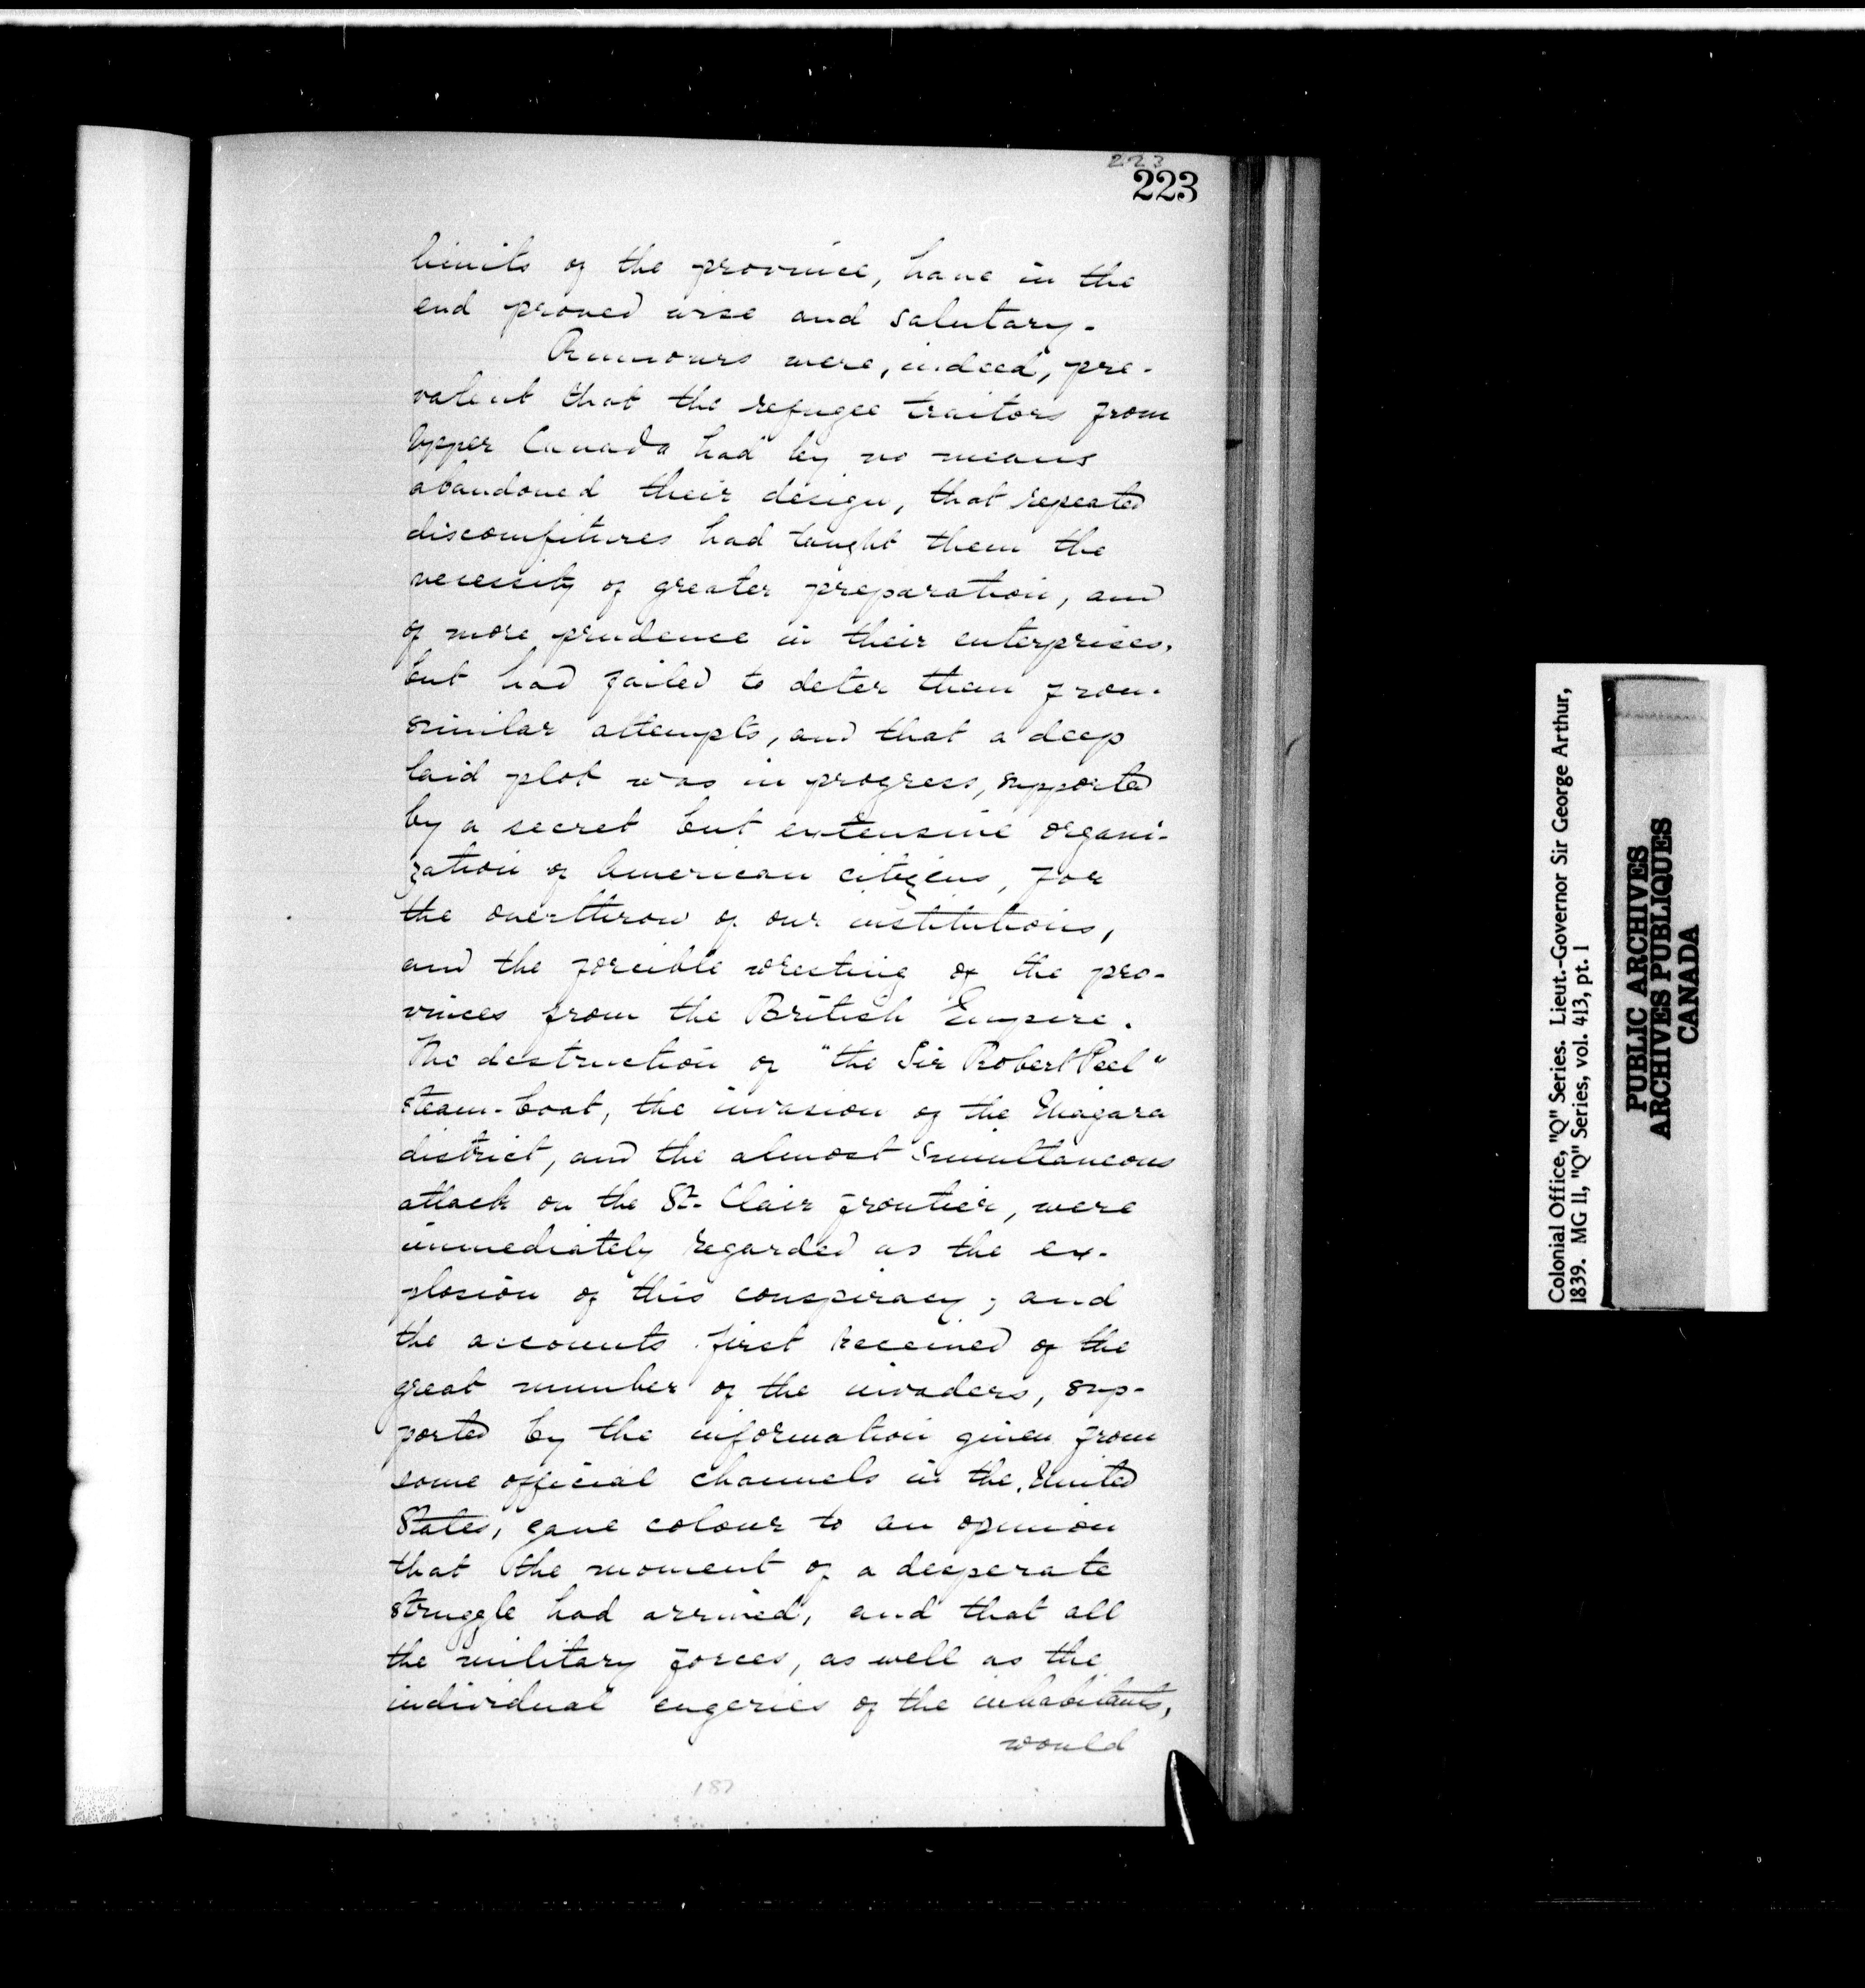 223
223
limits of the province, have in the
end proved wise and salutary.
Rumours were, indeed, pre-
valent that the refugee traitors from
Upper Canada had by no means
abandoned their design, that repeated
discomfitures had taught them the
necessity of greater preparation, and
of more prudence in their enterprises,
but had failed to deter them from
similar attempts, and that a deep
laid plot was in progress, supported
by a secret but extensive organi-
zation of American citizens, for
the overthrow of our institutions,
and the forcible wresting of the pro-
vinces from the British Empire.
The destruction of "the Sir Robert Peel"
steam-boat, the invasion of the Niagara
district, and the almost simultaneous
attack on the St. Clair frontier, were
immediately regarded as the ex-
plosion of this conspiracy; and
the accounts first received of the
great number of the invaders, sup-
ported by the information given from
some official channels in the United
States, gave colour to an opinion
that the moment of a desperate
struggle had arrived, and that all
the military forces, as well as the
individual engeries of the inhabitants,
would
187
Colonial Office, "Q" Series. Lieut.-Governor Sir George Arthur,
1839. MG 11, "Q" Series, vol. 413, pt. 1
PUBLIC ARCHIVES
ARCHIVES PUBLIQUES
CANADA